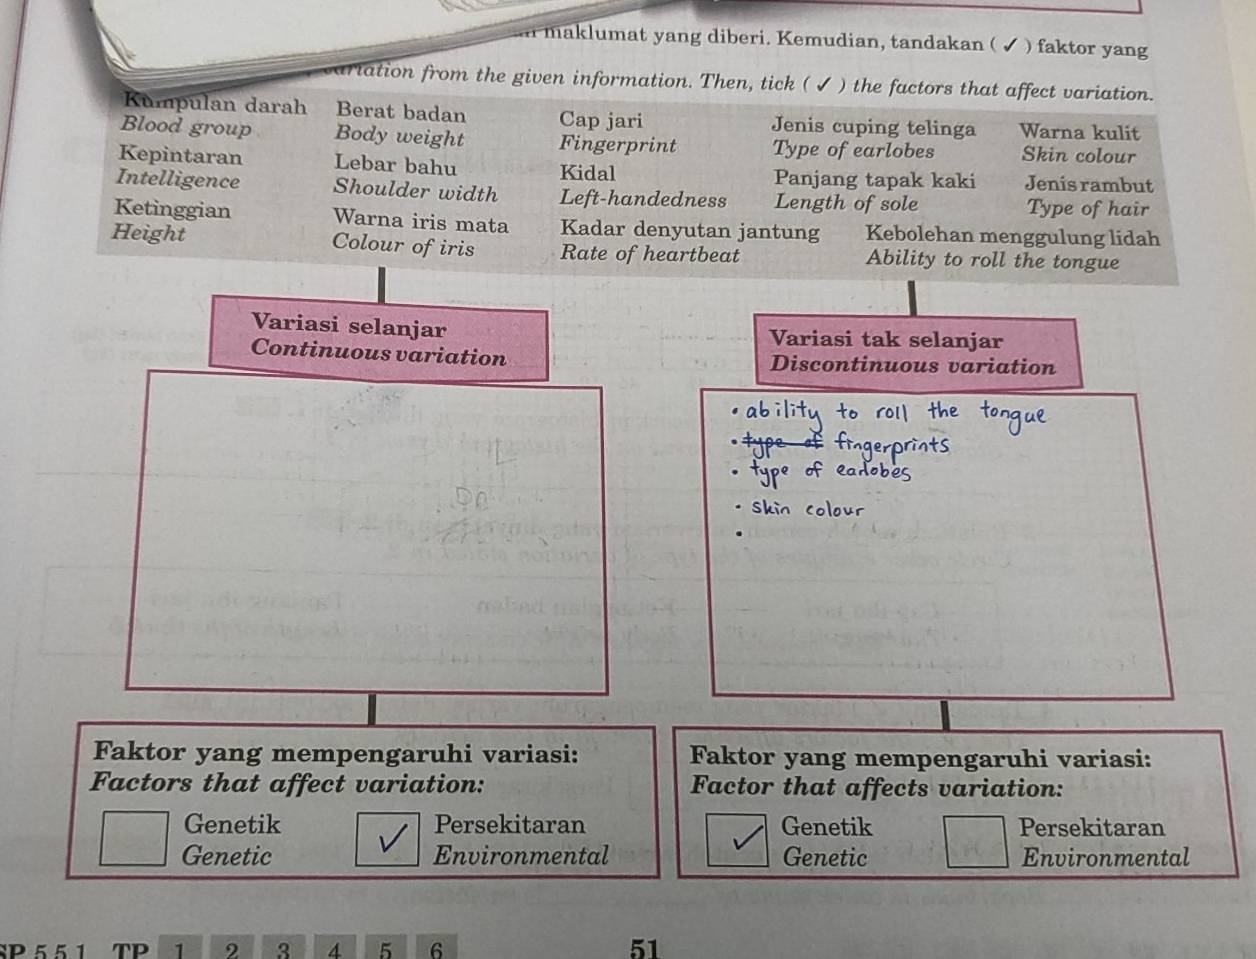 maklumat yang diberi. Kemudian, tandakan ( ✓ ) faktor yang
variation from the given information. Then, tick ( ✓ ) the factors that affect variation.
Kumpulan darah
Blood group
Berat badan
Body weight
Cap jari
Fingerprint
Jenis cuping telinga
Type of earlobes
Warna kulit
Skin colour
Kepintaran
Intelligence
Lebar bahu
Shoulder width
Kidal
Left-handedness
Panjang tapak kaki
Length of sole
Jenis rambut
Type of hair
Ketinggian
Height
Warna iris mata
Colour of iris
Kadar denyutan jantung
Rate of heartbeat
Kebolehan menggulung lidah
Ability to roll the tongue
Variasi selanjar
Continuous variation
Variasi tak selanjar
Discontinuous variation
• ability to roll the tongue
• type of fingerprints
• type of earlobes
• skin colour
•
Faktor yang mempengaruhi variasi:
Factors that affect variation:
Genetik
Genetic
✓ Persekitaran
Environmental
Faktor yang mempengaruhi variasi:
Factor that affects variation:
✓ Genetik
Genetic
Persekitaran
Environmental
SP 5.5.1 TP 1 2 3 4 5 6
51